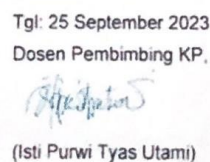 Tgl: 25 September 2023
Dosen Pembimbing KP,
(Isti Purwi Tyas Utami)